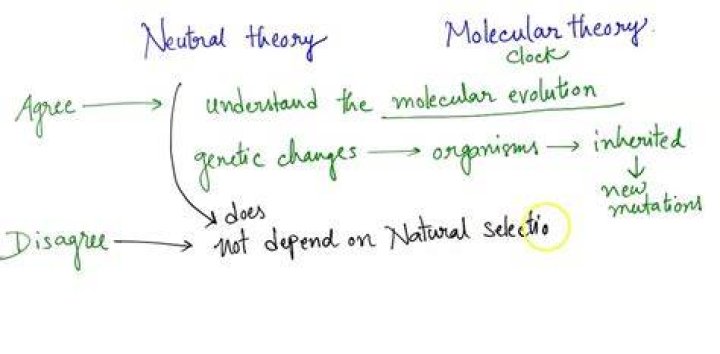 Neutral theory Molecular theory.
clock
Agree → understand the molecular evolution
genetic changes → organisms → inherited
↓
new
mutations
does
Disagree → not depend on Natural selectio